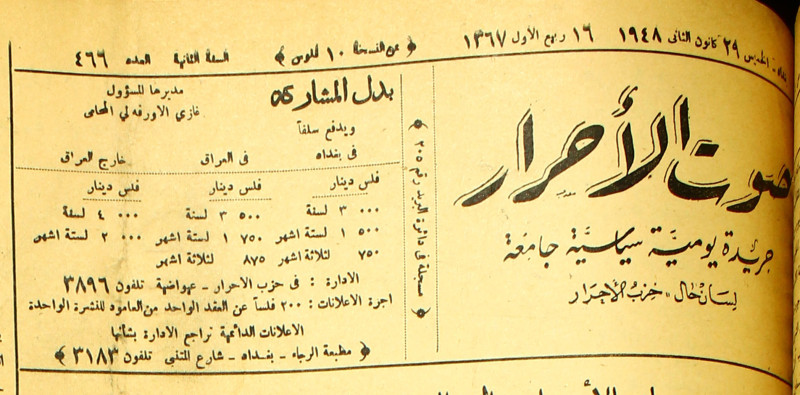 بغداد : الخميس ٢٩ كانون الثاني ١٩٤٨ ١٦ ربيع الاول ١٣٦٧ ﴿ ثمن النسخة ١٠ فلوس ﴾ السنة الثانية العدد ٤٦٦
صوت الأحرار
جريدة يومية سياسية جامعة
لسان حال « حزب الأحرار
﴿ مسجلة في دائرة البريد رقم ٢٠٥ ﴾
بدل المشاركة
ويدفع سلفاً
مديرها المسؤول
غازي الاورفه لي المحامي
في بغداد في العراق خارج العراق
فلس دينار فلس دينار فلس دينار
٠٠٠ ٣ لسنة ٥٠٠ ٣ لسنة ٠٠٠ ٤ لسنة
٥٠٠ ١ لستة اشهر ٧٥٠ ١ لستة اشهر ٠٠٠ ٢ لستة اشهر
٧٥٠ لثلاثة اشهر ٨٧٥ لثلاثة اشهر
الادارة : في حزب الاحرار - عهواضية تلفون ٣٨٩٦
اجرة الاعلانات : ٢٠٠ فلساً عن العقد الواحد من العامود للنشرة الواحدة
الاعلانات الدائمية تراجع الادارة بشأنها
﴿ مطبعة الرجاء - بغداد - شارع المتنبي تلفون ٣١٨٣ ﴾